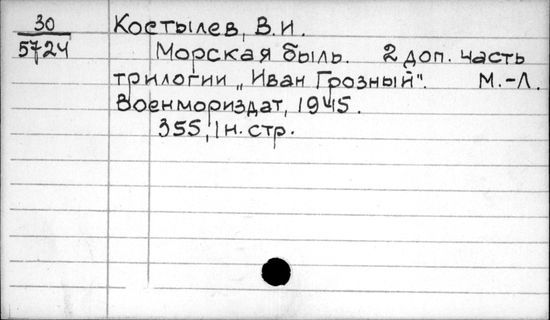 30
5724
Костылев, В.И.
Морская быль. 2 доп. часть
трилогии „Иван Грозный". М.-Л.
Военмориздат, 1945.
355, 1 н. стр.